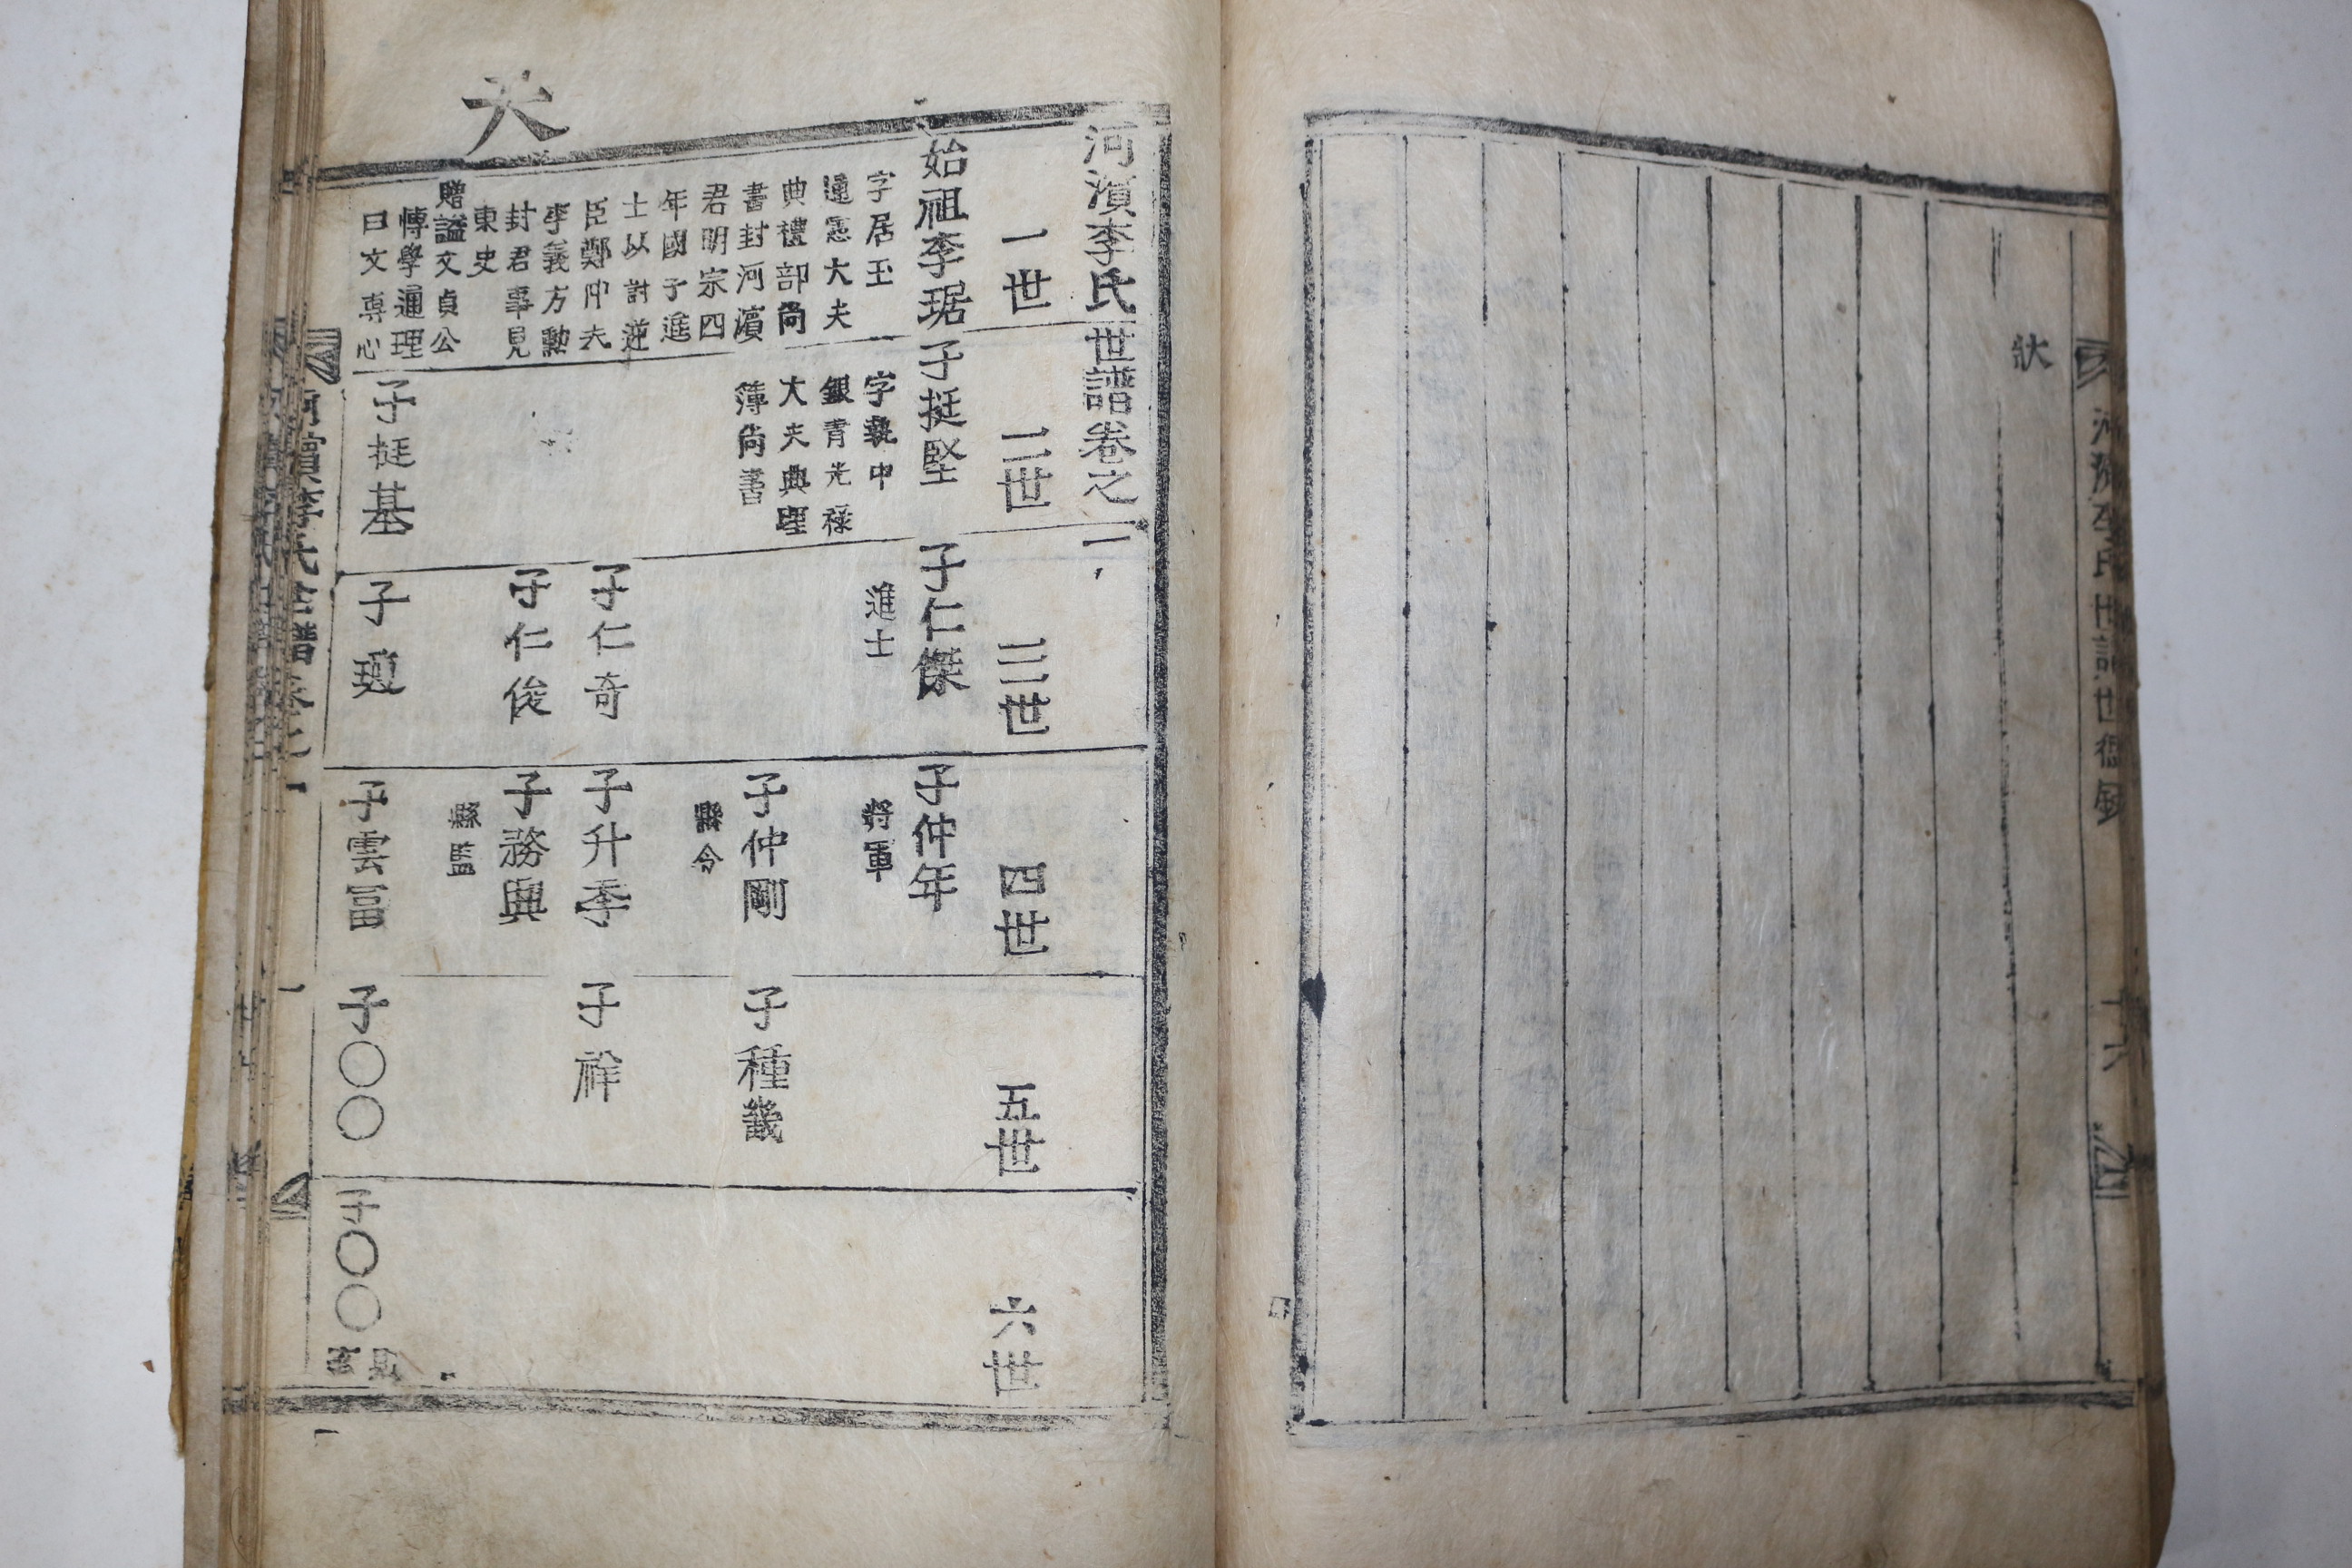 狀
河濱李氏世譜世德錄
十六
天
河濱李氏世譜卷之一
一世
二世
三世
四世
五世
六世
始祖李琚
字居玉
通憲大夫
典禮部尙
書封河濱
君明宗四
年國子進
士以討逆
臣鄭仲夫
李義方勳
封君事見
東史
贈謚文貞公
博學通理
曰文專心
子挺堅
字執中
銀青光祿
大夫典理
簿尙書
子仁傑
進士
子仲年
將軍
子仲剛
縣令
子種畿
子仁奇
子升季
子祥
子仁俊
子務興
縣監
子挺基
子
子雲富
子〇〇
子〇〇
河濱李氏世譜卷之一
一